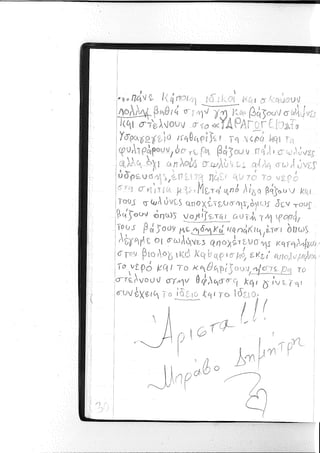 ...πάνε κάποιοι ιδικοί και σκάβουν
πολλή βαθιά στην γη και βάζουν σωλήνες
και στέλνουν στο «ΥΔΑΡΑΓΟΓΕΙΟ» Στο
Υδραγωγείο καθαρίζει το νερό και το
φυλτράρουν, ύστερα βάζουν πάλι σωλήνες
αλλά όχι απλούς σωλήνες αλλά σωλήνες
ύδρευσης, έπειτα πάει αυτό το νερό
στα σπίτια μας. Μετά από λίγο βάζουν και
τους σωλήνες αποχέτευσης, όμως δεν τους
βάζουν όπως νομίζεται αυτή τη φορά,
τους βάζουν με καπάκια, έτσι όπως
λέγαμε οι σωλήνες αποχέτευσης καταλήγουν
στον βιολογικό καθαρισμό, εκεί
το νερό και το καθαρίζουν, ηστερα το
στέλνουν στην θάλασσα και γίνεται
συνέχεια το ίδειο και το ίδειο.
Άριστα!!!
Μπράβο Δημήτρη